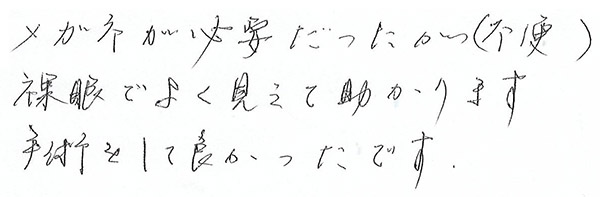 メガネが必要だったが(不便)
裸眼でよく見えて助かります
手術をして良かったです.